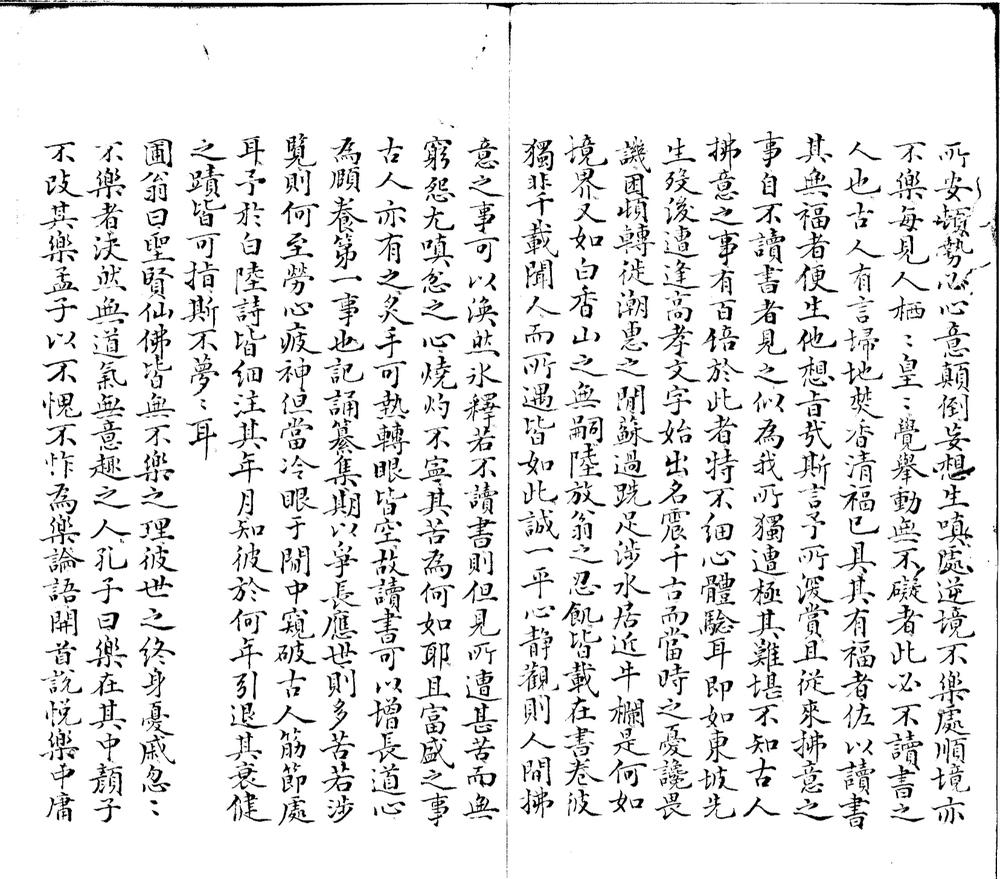 所安頓勢必心意顛倒妄想生嗔處逆境不樂處順境亦
不樂每見人栖〻皇〻覺舉動無不礙者此必不讀書之
人也古人有言掃地焚香清福已具其有福者佐以讀書
其無福者便生他想旨哉斯言予所深賞且從來拂意之
事自不讀書者見之似為我所獨遭極其難堪不知古人
拂意之事有百倍於此者特不細心體驗耳即如東坡先
生歿後遭逢高孝文字始出名震千古而當時之憂讒畏
譏困頓轉徙潮惠之間蘇過跣足涉水居近牛欄是何如
境界又如白香山之無嗣陸放翁之忍飢皆載在書卷彼
獨非千載聞人而所遇皆如此誠一平心靜觀則人間拂
意之事可以渙然冰釋若不讀書則但見所遭甚苦而無
窮怨尤嗔忿之心燒灼不寧其苦為何如耶且富盛之事
古人亦有之炙手可熱轉眼皆空故讀書可以增長道心
為頤養第一事也記誦纂集期以爭長應世則多苦若涉
覽則何至勞心疲神但當冷眼于閒中窺破古人筋節處
耳予於白陸詩皆細注其年月知彼於何年引退其衰健
之蹟皆可指斯不夢〻耳
圃翁曰聖賢仙佛皆無不樂之理彼世之終身憂戚忽〻
不樂者決然無道氣無意趣之人孔子曰樂在其中顏子
不改其樂孟子以不愧不怍為樂論語開首說悅樂中庸